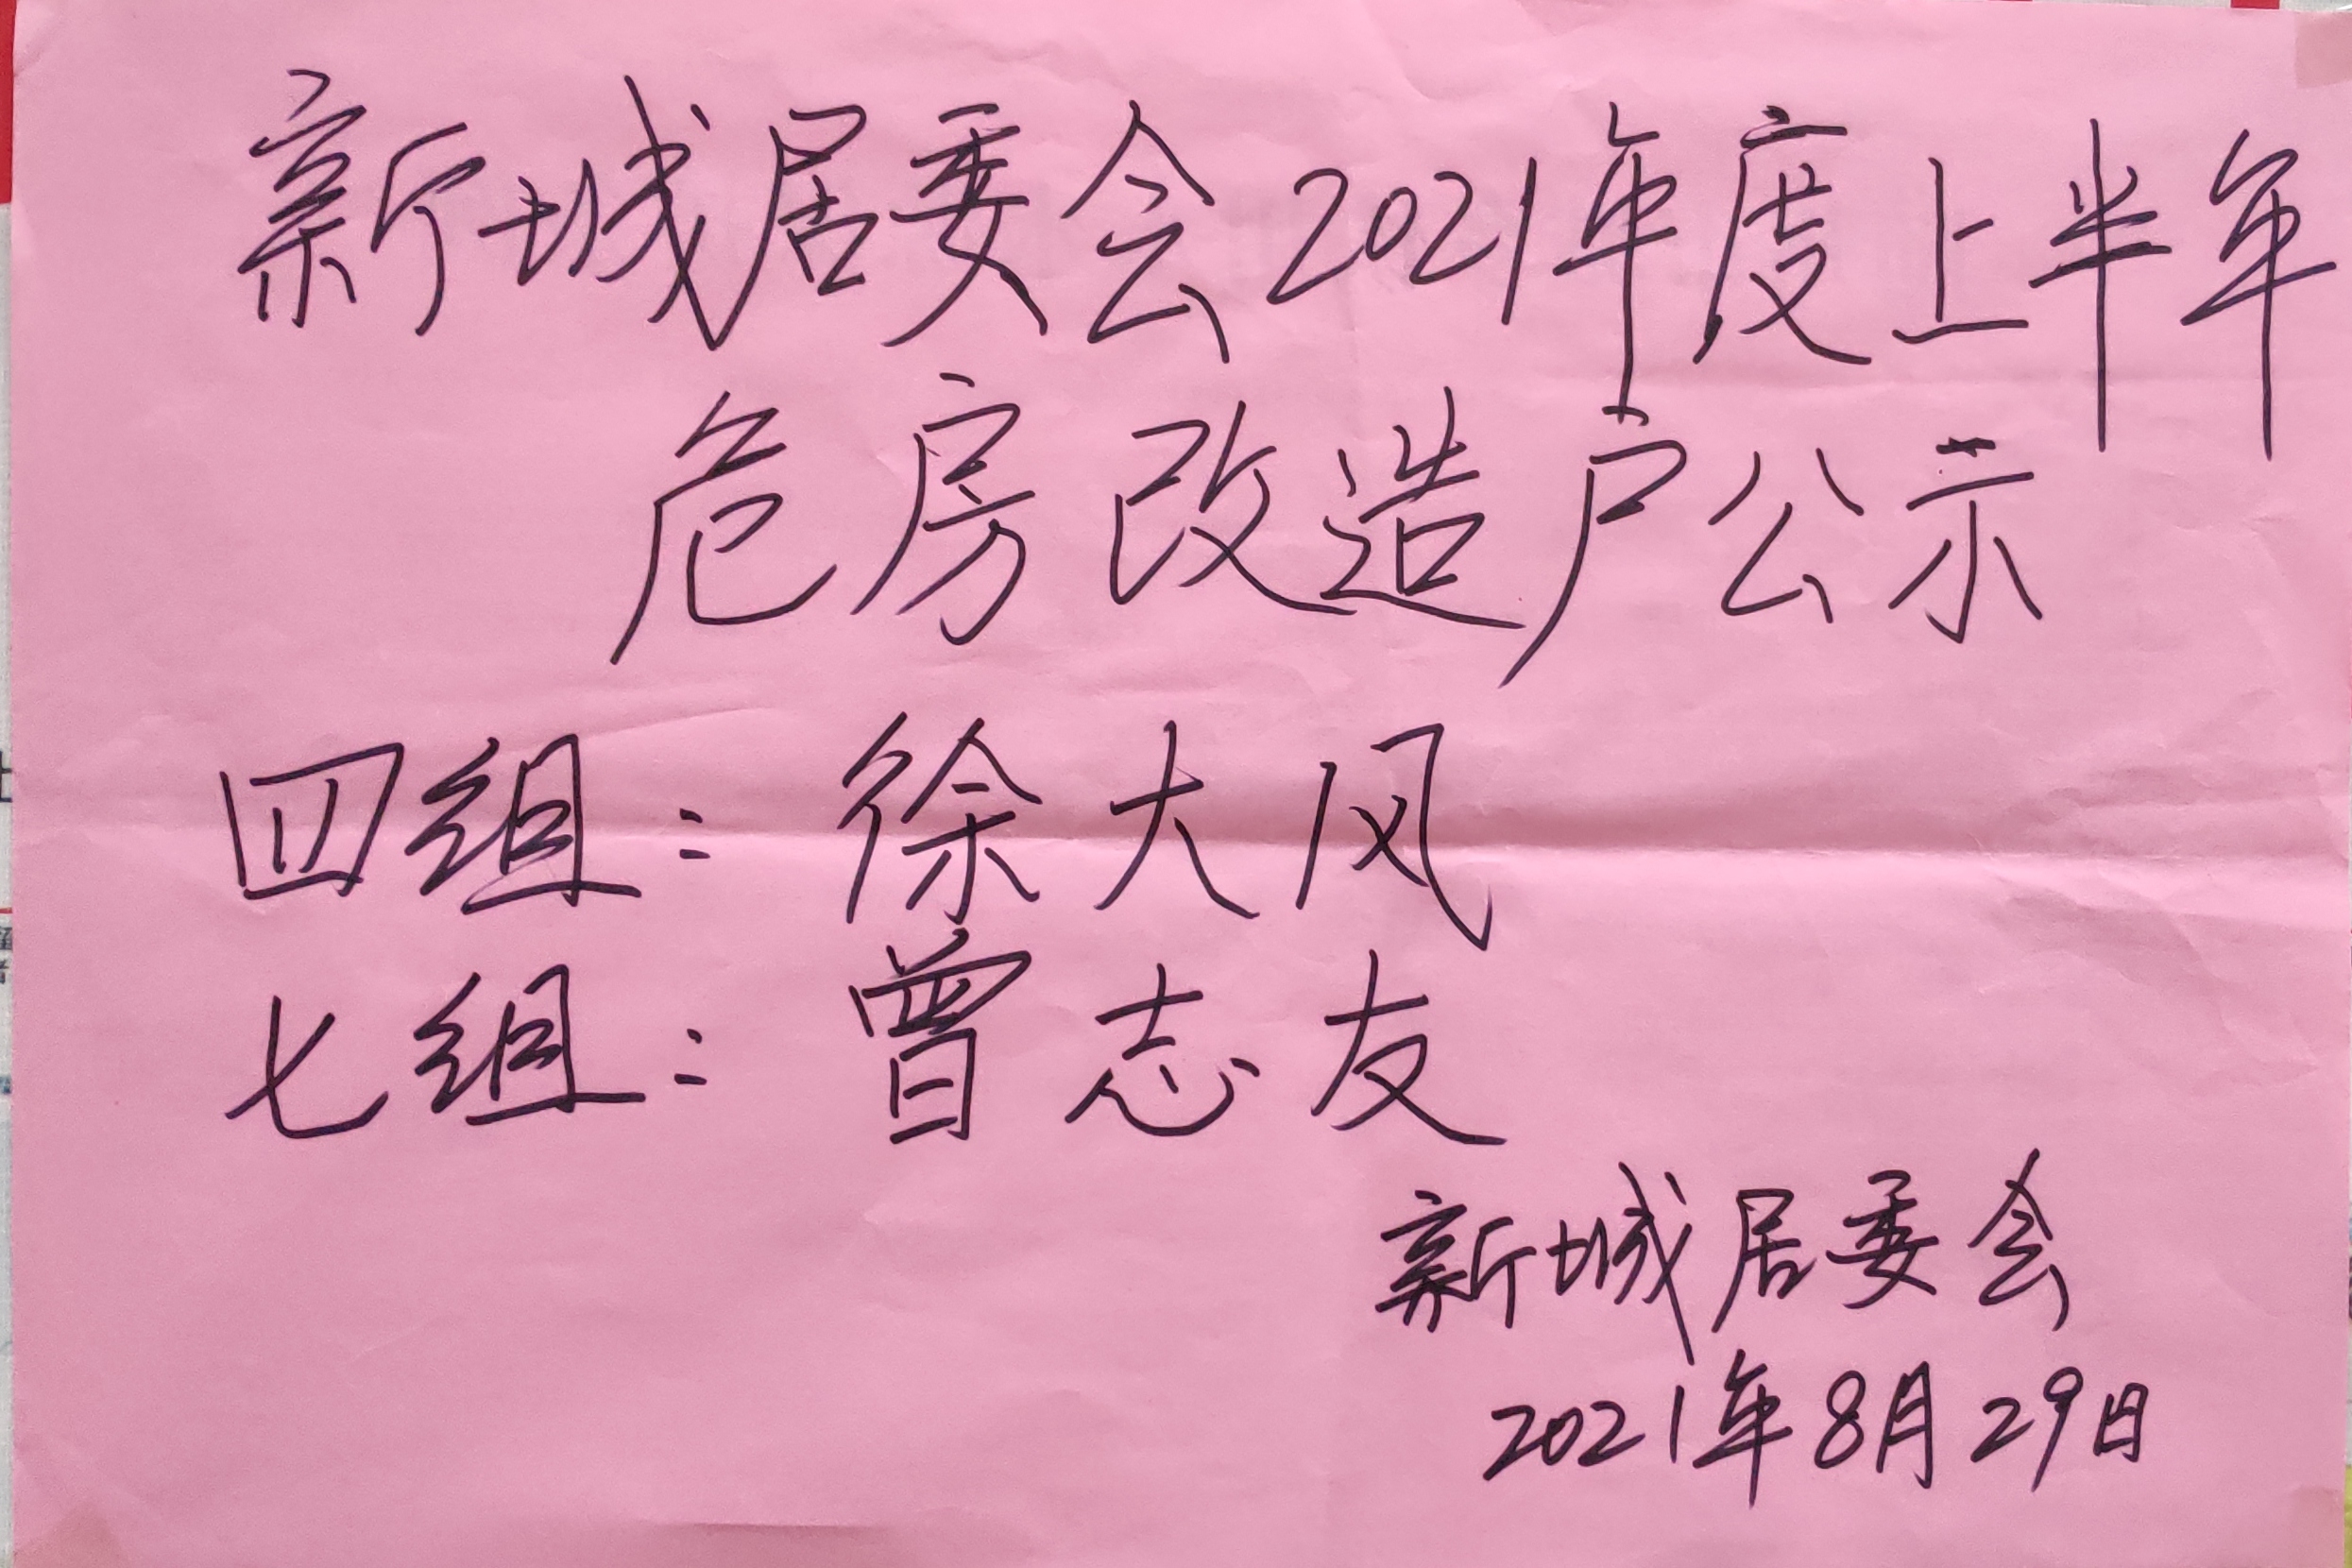 新城居委会2021年度上半年
危房改造户公示
四组：徐大风
七组：曾志友
新城居委会
2021年8月29日